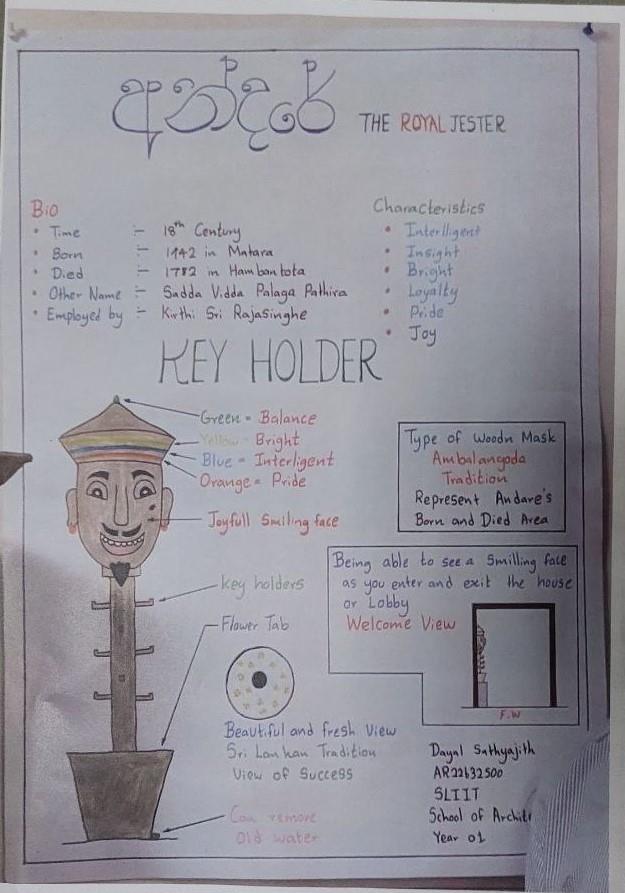 අන්දරේ THE ROYAL JESTER
Bio
• Time :- 18th Century
• Born :- 1742 in Matara
• Died :- 1782 in Hambantota
• Other Name :- Sadda Vidda Palaga Pathira
• Employed by :- Kirthi Sri Rajasinghe
Characteristics
• Interlligent
• Insight
• Bright
• Loyalty
• Pride
• Joy
KEY HOLDER
Green = Balance
Yellow = Bright
Blue = Interligent
Orange = Pride
Joyfull Smiling face
key holders
Flower Tab
Beautiful and fresh View
Sri Lankan Tradition
View of Success
Can remove
old water
Type of Woodn Mask
Ambalangoda
Tradition
Represent Andare's
Born and Died Area
Being able to see a Smilling face
as you enter and exit the house
or Lobby
Welcome View
F.W
Dayal Sathyajith
AR22632500
SLIIT
School of Archit
Year 01